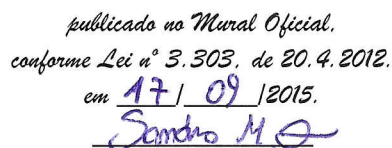 publicado no Mural Oficial,
conforme Lei nº 3.303, de 20.4.2012.
em 17/ 09 /2015.
Sandro M